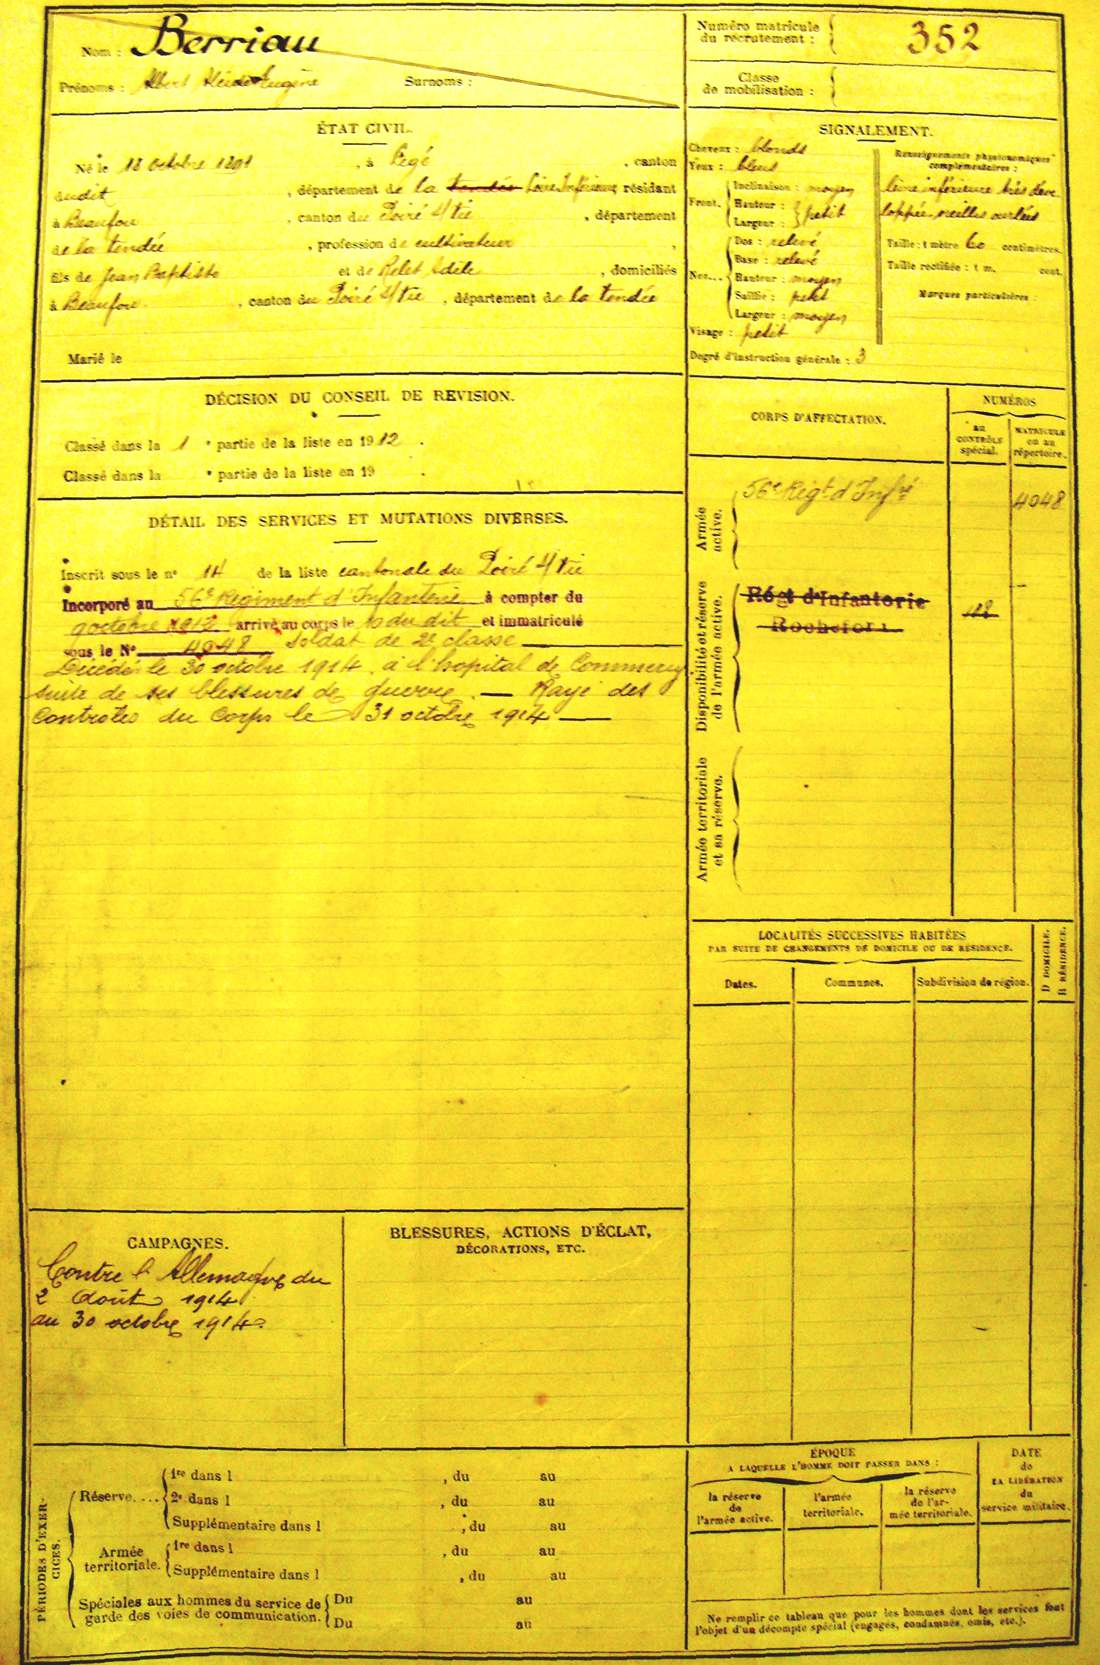 Nom : Berriau
Prénoms : Albert Alcide Eugène Surnoms :
Numéro matricule du recrutement : 352
Classe de mobilisation :
ÉTAT CIVIL.
Né le 18 octobre 1891, à Legé, canton
dudit, département de la Vendée Loire Inférieure, résidant
à Beaufou, canton du Poiré s/ Vie, département
de la Vendée, profession de cultivateur,
fils de Jean Baptiste et de Relet Adèle, domiciliés
à Beaufou, canton du Poiré s/ Vie, département de la Vendée
Marié le
SIGNALEMENT.
Cheveux : blonds
Yeux : bleus
Front. Inclinaison : moyen
Hauteur : petit
Largeur :
Nez... Dos : relevé
Base : relevé
Hauteur : moyen
Saillie : petit
Largeur : moyen
Visage : petit
Renseignements physionomiques complémentaires :
lèvre inférieure très déve-
loppée, oreilles ourlées
Taille : 1 mètre 60 centimètres.
Taille rectifiée : 1 m. cent.
Marques particulières :
Degré d'instruction générale : 3
DÉCISION DU CONSEIL DE REVISION.
Classé dans la 1 e partie de la liste en 1912.
Classé dans la e partie de la liste en 19 .
DÉTAIL DES SERVICES ET MUTATIONS DIVERSES.
Inscrit sous le n° 14 de la liste cantonale du Poiré s/ Vie
Incorporé au 56e Régiment d'Infanterie à compter du
9 octobre 1912 arrivé au corps le 10 du dit et immatriculé
sous le N° 4048 Soldat de 2e classe
Décédé le 30 octobre 1914 à l'hopital de Commercy
suite de ses blessures de guerre. — Rayé des
Controles du Corps le 31 octobre 1914 —
CORPS D'AFFECTATION.
NUMÉROS
au CONTRÔLE spécial.
MATRICULE ou au répertoire.
Armée active.
56e Régt d'Infrie 4048
Disponibilité et réserve de l'armée active.
Régt d'Infanterie 118
Rochefort
Armée territoriale et sa réserve.
LOCALITÉS SUCCESSIVES HABITÉES
PAR SUITE DE CHANGEMENTS DE DOMICILE OU DE RÉSIDENCE.
Dates. Communes. Subdivision de région. D DOMICILE. R RÉSIDENCE.
CAMPAGNES.
Contre l'Allemagne du
2 Août 1914
au 30 octobre 1914.
BLESSURES, ACTIONS D'ÉCLAT,
DÉCORATIONS, ETC.
PÉRIODES D'EXERCICES.
Réserve.... 1re dans l , du au
2e dans l , du au
Supplémentaire dans l , du au
Armée territoriale. 1re dans l , du au
Supplémentaire dans l , du au
Spéciales aux hommes du service de garde des voies de communication. Du au
Du au
ÉPOQUE
A LAQUELLE L'HOMME DOIT PASSER DANS :
la réserve de l'armée active.
l'armée territoriale.
la réserve de l'armée territoriale.
DATE de LA LIBÉRATION du service militaire.
Ne remplir ce tableau que pour les hommes dont les services font
l'objet d'un décompte spécial (engagés, condamnés, omis, etc.).